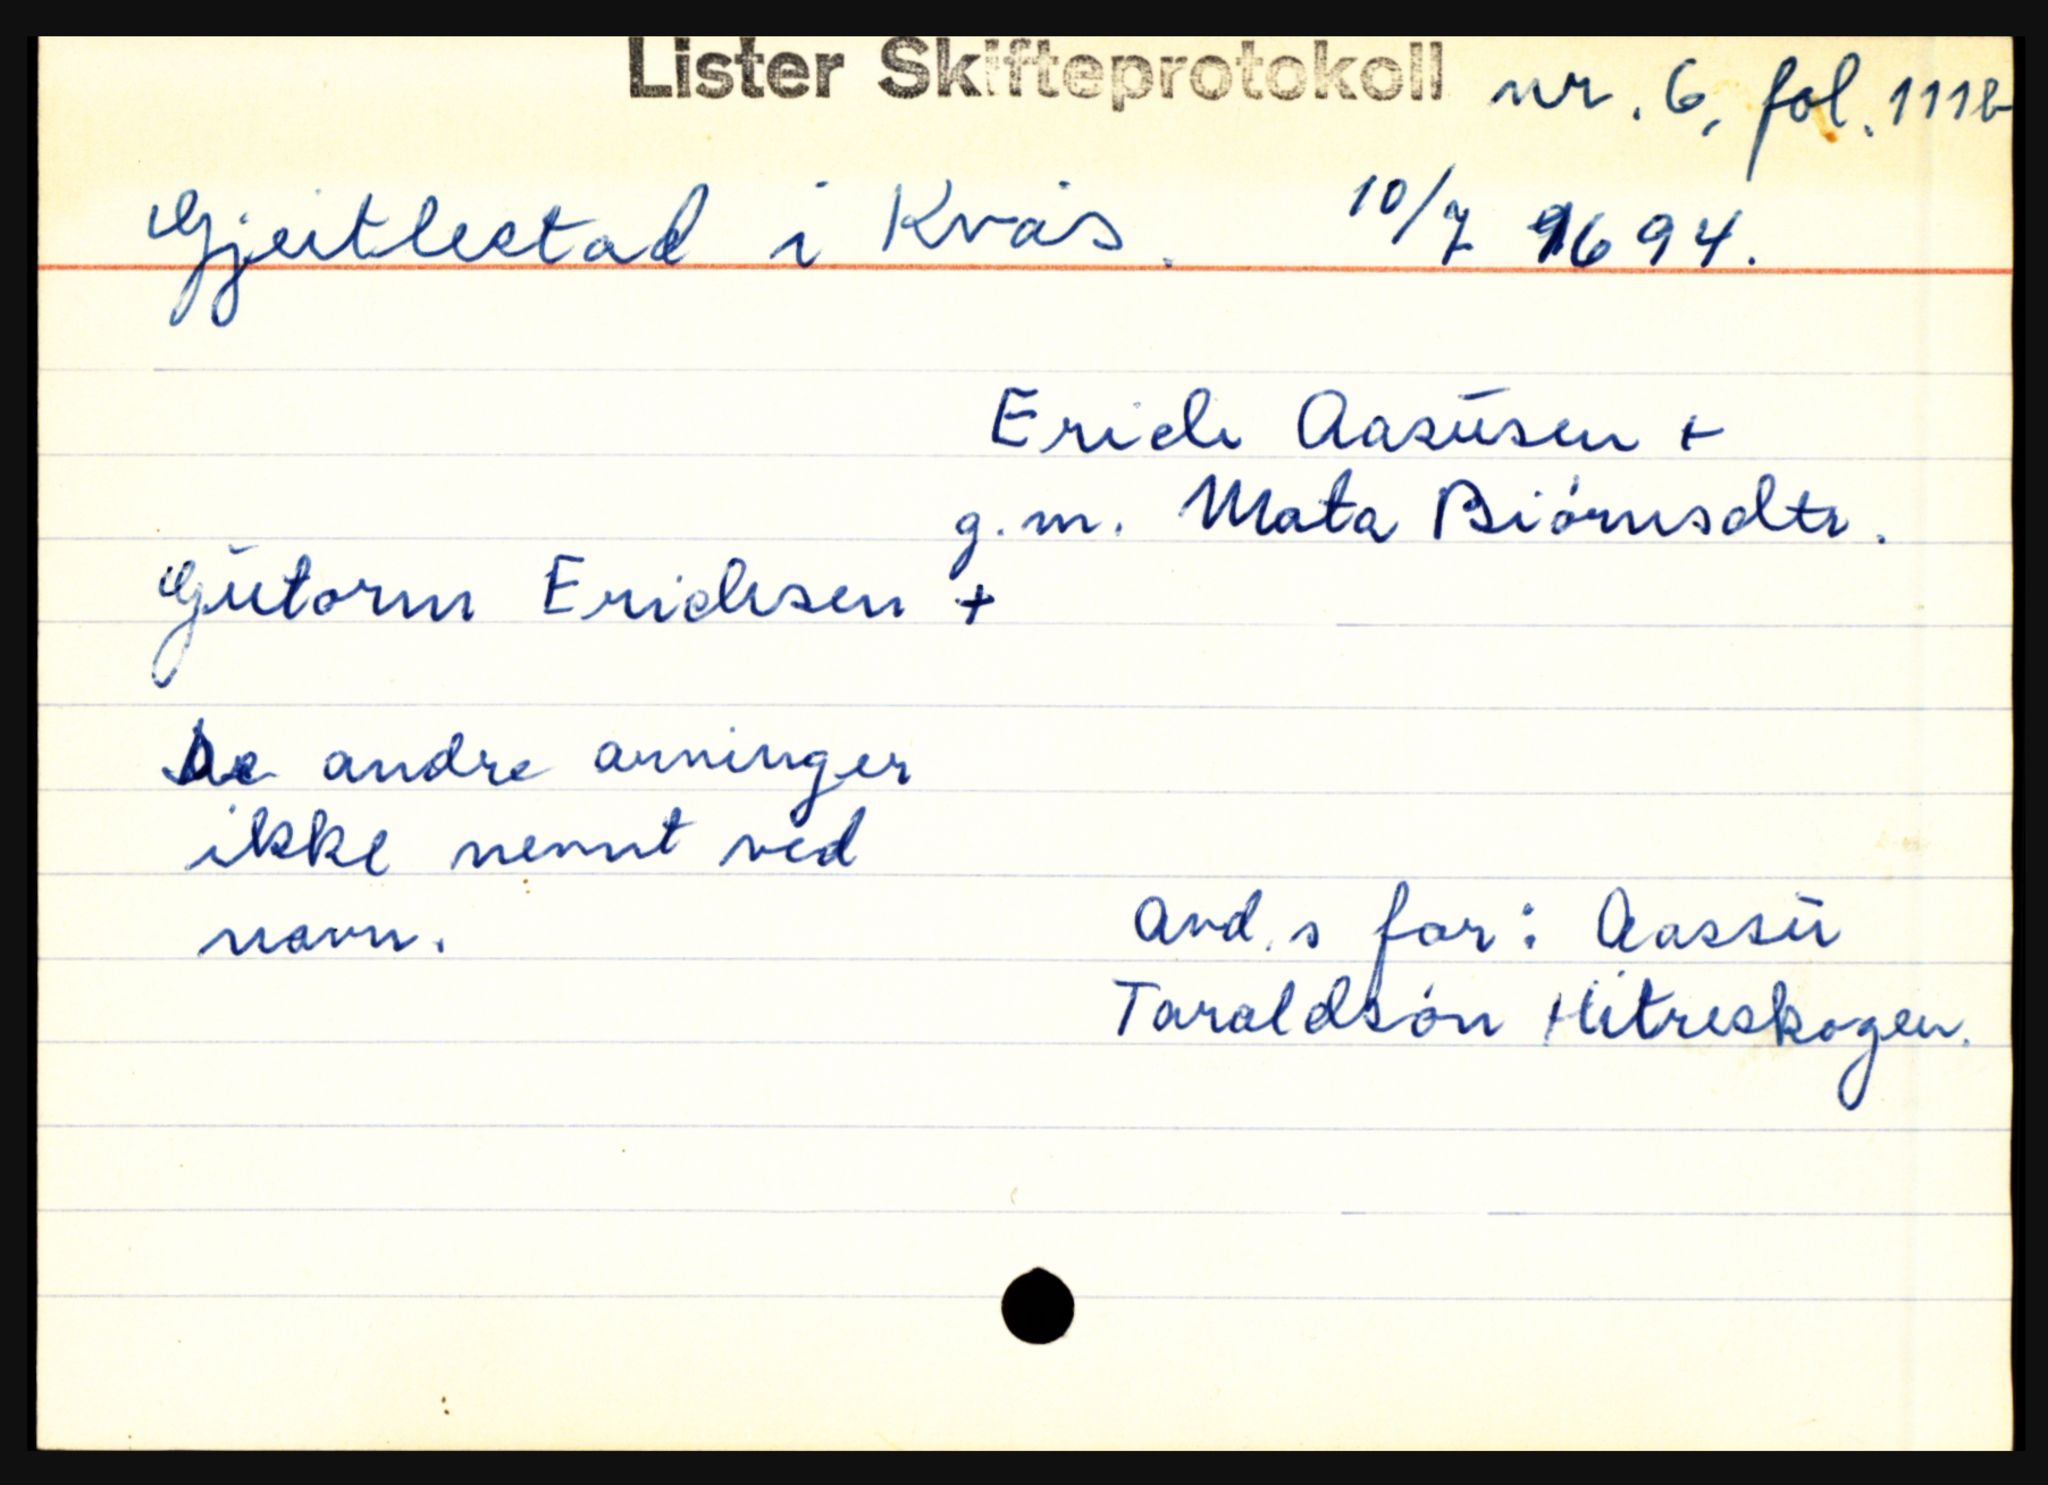 Lister Skifteprotokoll nr. 6, fol. 111b
Gjeitlestad i Kvås. 10/7 1694.
Erich Aasüsen +
g.m. Mata Biórnsdtr.
Gütorm Erichsen +
De andre arvinger
ikke nevnt ved
navn.
Avd.s far: Aassü
Taraldsón Hitreskogen.